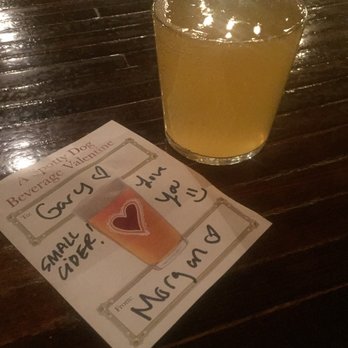 A Spotty Dog
Beverage Valentine
To:
Gary ♡
SMALL
CIDER!
Love
You :)
From:
Morgan ♡